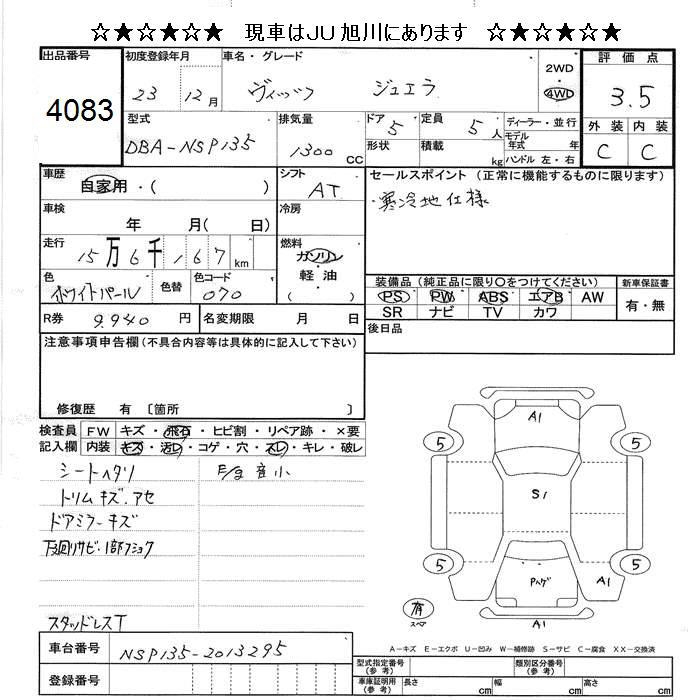 ☆★☆★☆★ 現車はJU旭川にあります ☆★☆★☆★
出品番号 4083
初度登録年月 23 12月
車名・グレード ヴィッツ ジュエラ
2WD
4WD
評価点 3.5
外装 C 内装 C
型式 DBA-NSP135
排気量 1300 CC
ドア 5 形状
定員 5 人 積載 kg
ディーラー・並行
モデル年式 年
ハンドル 左・右
車歴 自家用・( )
シフト AT
セールスポイント (正常に機能するものに限ります)
・寒冷地仕様
車検 年 月(日)
冷房
走行 15万6千167km
燃料 ガソリン
軽・油
( )
色 ホワイトパール 色替 色コード 070
装備品 (純正品に限り○をつけてください)
PS PW ABS エアB AW
SR ナビ TV カワ
新車保証書
有・無
R券 9.940 円 名変期限 月 日
後日品
注意事項申告欄(不具合内容等は具体的に記入して下さい)
修復歴 有 〔箇所 〕
検査員記入欄
FW キズ・飛石・ヒビ割・リペア跡・×要
内装 キズ・汚レ・コゲ・穴・スレ・キレ・破レ
シートヘタリ
トリムキズ.アセ
ドアミラーキズ
下廻リサビ・1部フショク
スタッドレスT
A1
5 5
S1
5 5
Pハゲ A1
有
スペア
A1
A-キズ E-エクボ U-凹み W-補修跡 S-サビ C-腐食 XX-交換済
車台番号 NSP135-2013295
登録番号
型式指定番号(参考) 類別区分番号(参考)
車庫証明用(参考) 長さ cm 幅 cm 高さ cm